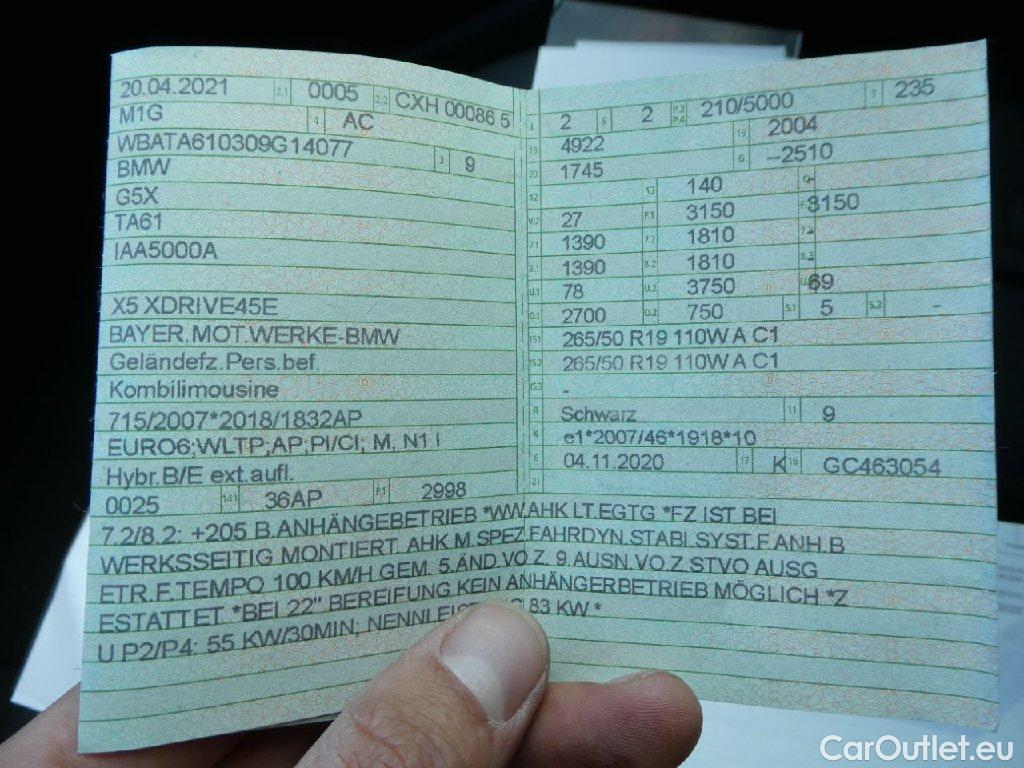 20.04.2021 2.1 0005 2.2 CXH 00086 5
M1G 4 AC
WBATA610309G14077 3 9
BMW
G5X
TA61
IAA5000A
X5 XDRIVE45E
BAYER.MOT.WERKE-BMW
Geländefz.Pers.bef.
Kombilimousine
715/2007*2018/1832AP
EURO6;WLTP;AP;PI/CI; M, N1 I
Hybr.B/E ext.aufl.
0025 14.1 36AP P.1 2998
L 2 9 2 P.2 P.4 210/5000 T 235
18 4922 19 2004
20 1745 G --2510
12 13 140 Q -
V.7 27 F.1 3150 F.2 3150
7.1 1390 7.2 1810 7.3 -
8.1 1390 8.2 1810 8.3 -
U.1 78 U.2 3750 U.3 69
O.1 2700 O.2 750 S.1 5 S.2 -
15.1 265/50 R19 110W A C1
15.2 265/50 R19 110W A C1
15.3 -
R Schwarz 11 9
K e1*2007/46*1918*10
6 04.11.2020 17 K 16 GC463054
21
7.2/8.2: +205 B.ANHÄNGEBETRIEB *WW.AHK LT.EGTG *FZ IST BEI
WERKSSEITIG MONTIERT. AHK M.SPEZ.FAHRDYN.STABI.SYST.F.ANH.B
ETR.F.TEMPO 100 KM/H GEM. 5.ÄND.VO.Z. 9.AUSN.VO.Z.STVO AUSG
ESTATTET *BEI 22" BEREIFUNG KEIN ANHÄNGERBETRIEB MÖGLICH *Z
U P2/P4: 55 KW/30MIN; 83 KW *
CarOutlet.eu